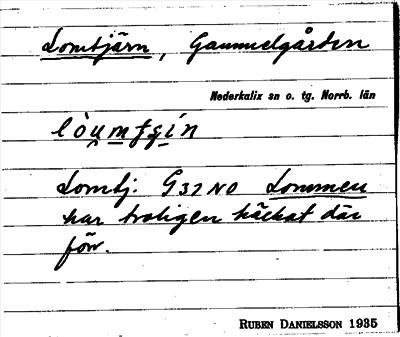 Lomtjärn, Gammelgården
Nederkalix sn o. tg. Norrb. län
lòu̯mtʂín
Lomtj. G32NO Lommen
har troligen häckat där
förr.
RUBEN DANIELSSON 1935